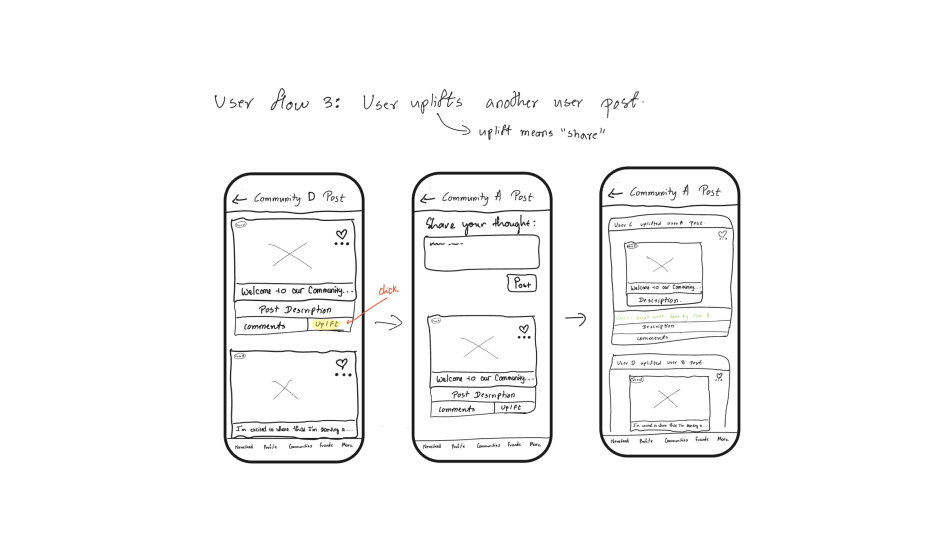 User flow 3: User uplifts another user post.
uplift means "share"
Community D Post
Welcome to our Community...
Post Description
comments
Uplift
click
I'm excited to share that I'm starting a...
Newsfeed Profile Communities Friends More
Community A Post
Share your thought:
Post
Welcome to our Community...
Post Description
comments
Uplift
Newsfeed Profile Communities Friends More
Community A Post
User C uplifted user A post.
Welcome to our Community...
Description.
Description
comments
User D uplifted user B post.
I'm excited to share that I'm starting a...
Newsfeed Profile Communities Friends More